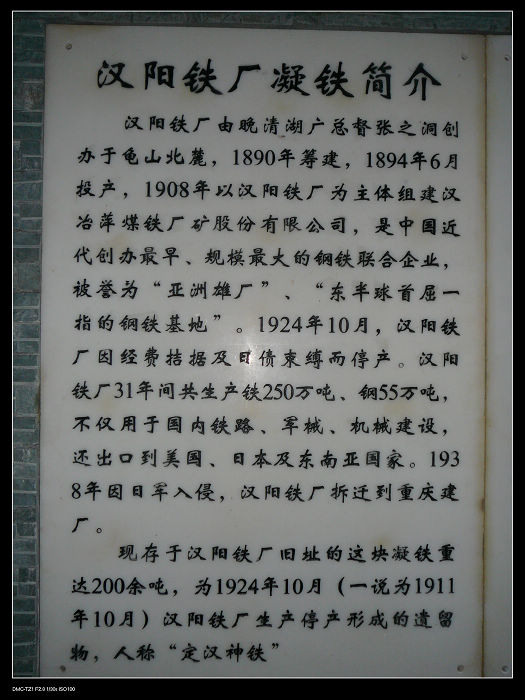 汉阳铁厂凝铁简介
汉阳铁厂由晚清湖广总督张之洞创
办于龟山北麓，1890年筹建，1894年6月
投产，1908年以汉阳铁厂为主体组建汉
冶萍煤铁厂矿股份有限公司，是中国近
代创办最早、规模最大的钢铁联合企业，
被誉为“亚洲雄厂”、“东半球首屈一
指的钢铁基地”。1924年10月，汉阳铁
厂因经费拮据及日债束缚而停产。汉阳
铁厂31年间共生产铁250万吨、钢55万吨，
不仅用于国内铁路、军械、机械建设，
还出口到美国、日本及东南亚国家。193
8年因日军入侵，汉阳铁厂拆迁到重庆建
厂。
现存于汉阳铁厂旧址的这块凝铁重
达200余吨，为1924年10月（一说为1911
年10月）汉阳铁厂生产停产形成的遗留
物，人称“定汉神铁”
DMC-TZ1 F2.8 1/30s ISO100